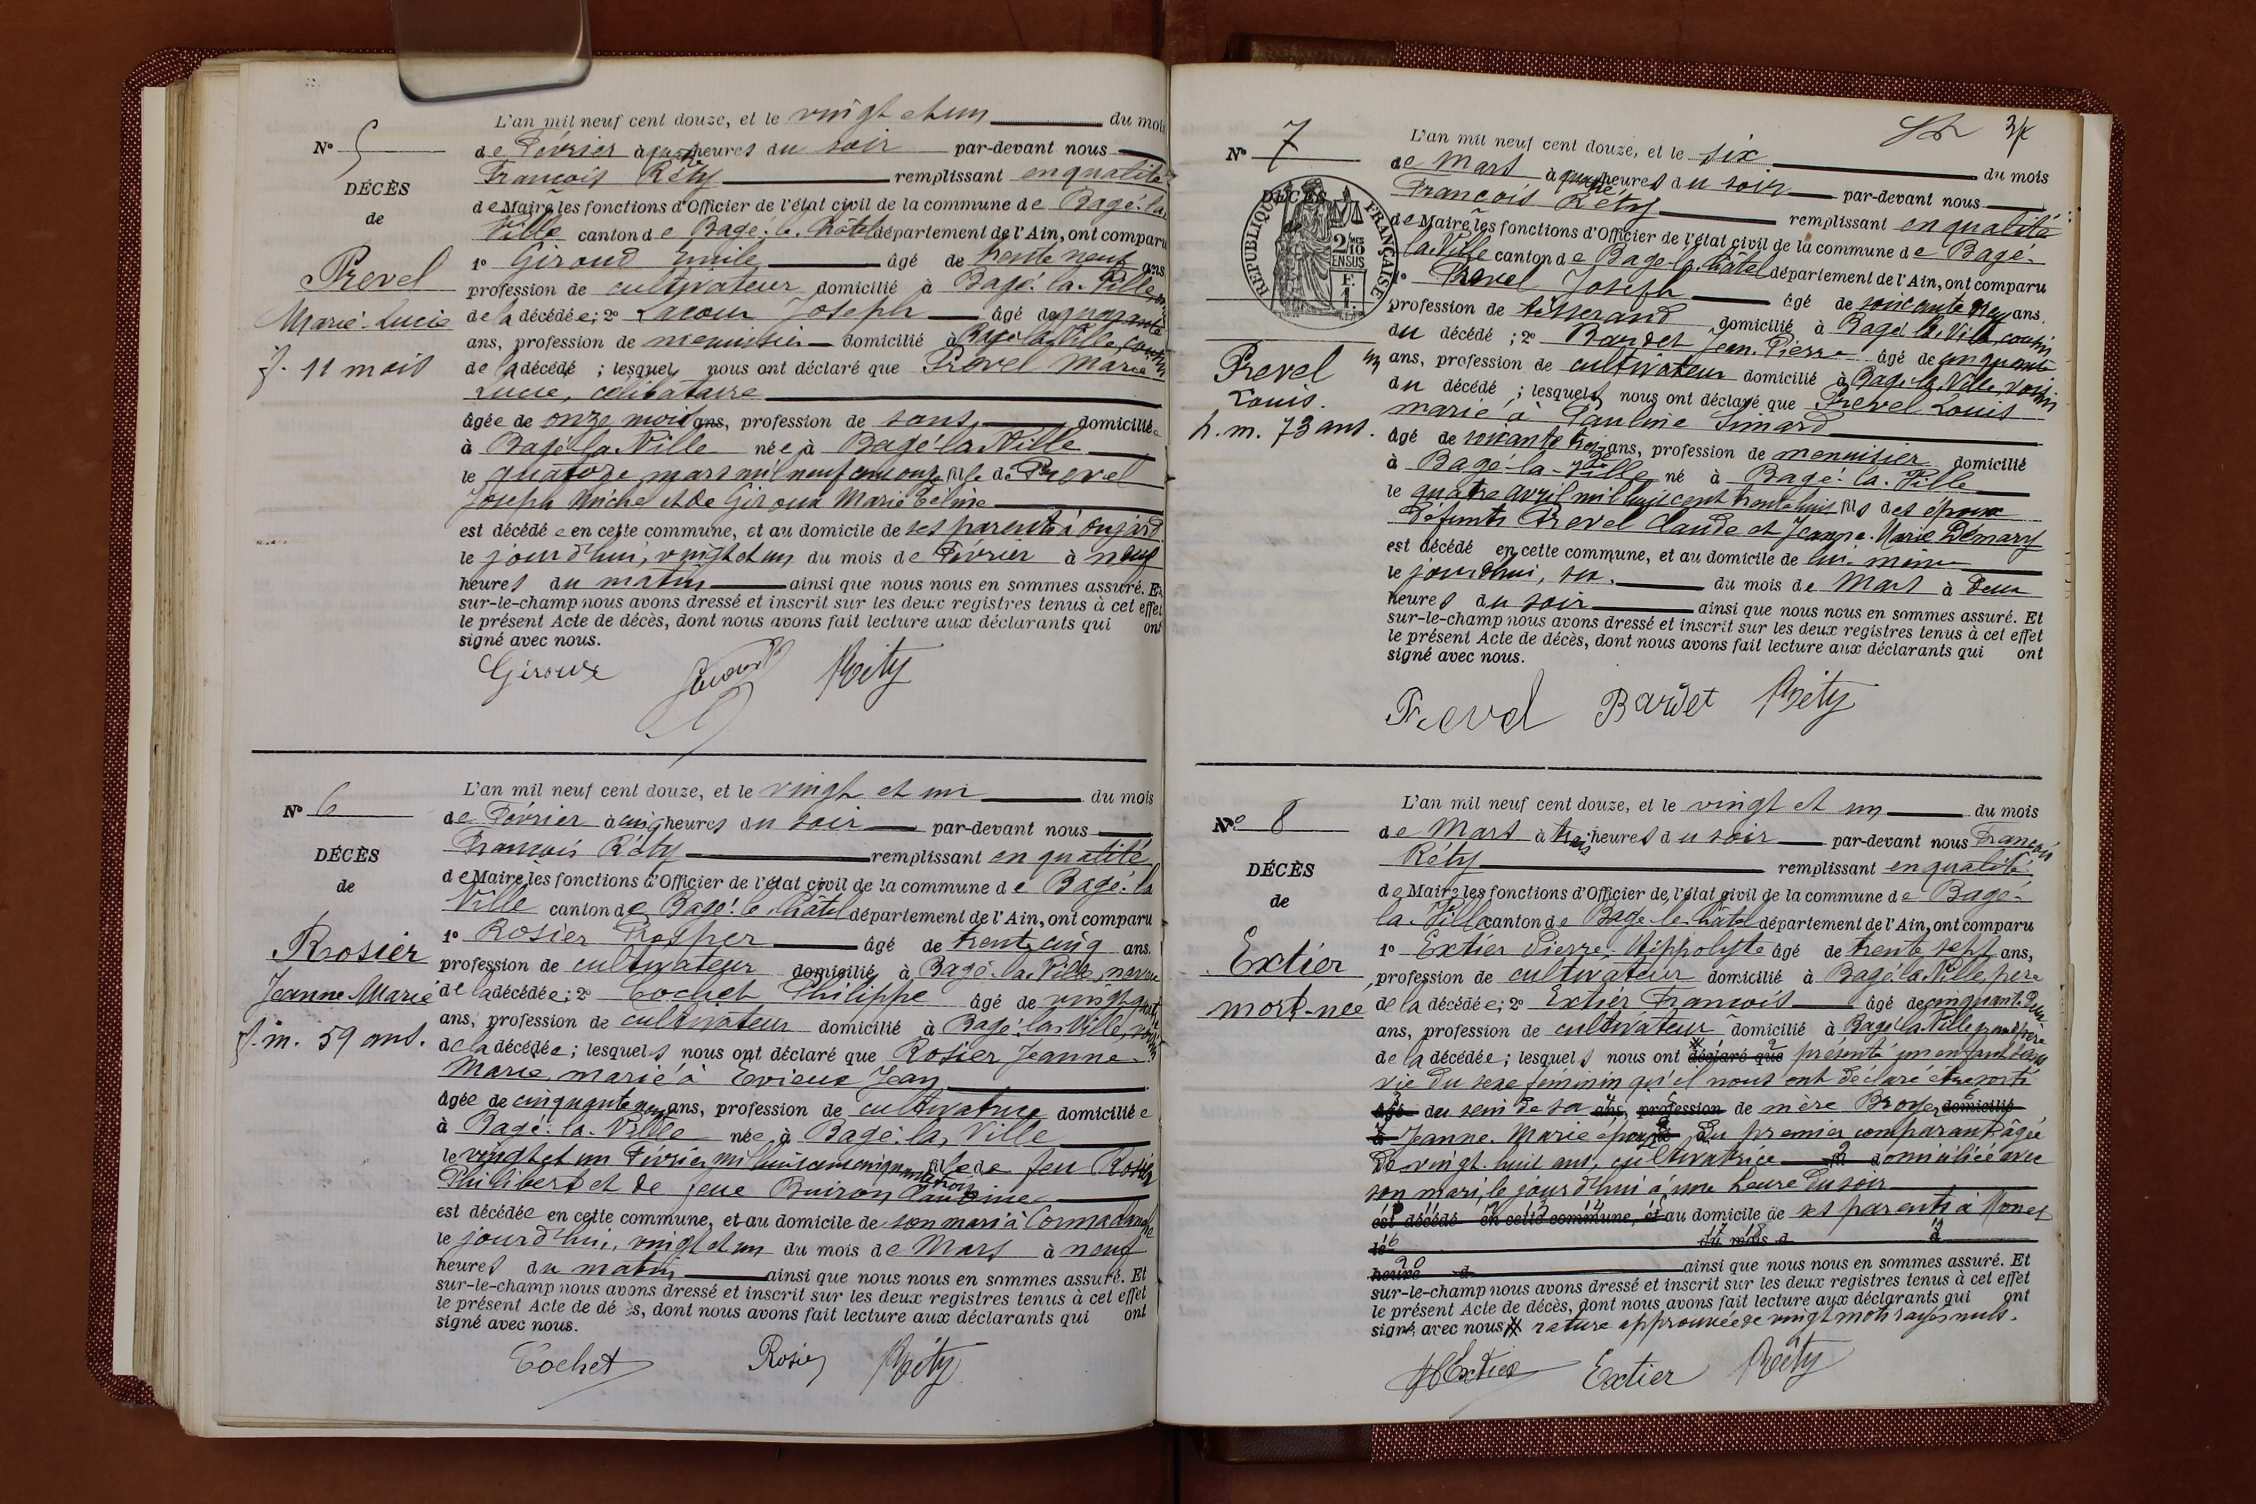 N° 5
DÉCÈS
de
Prevel
Marie-Lucie
f. 11 mois
L'an mil neuf cent douze, et le vingt et un du mois
de Février à heures du soir par-devant nous
François Réty remplissant en qualité
de Maire les fonctions d'Officier de l'état civil de la commune de Bagé-la
Ville canton de Bagé-le-Châtel département de l'Ain, ont comparu
1° Giroud Emile âgé de trente neuf ans
profession de cultivateur domicilié à Bagé-la-Ville
de la décédée; 2° Lacour Joseph âgé de quarante
ans, profession de menuisier domicilié à Bagé la Ville, cousin
de la décédé ; lesquels nous ont déclaré que Prevel Marie
Lucie, célibataire
âgée de onze mois ans, profession de sans domiciliée
à Bagé-la-Ville née à Bagé-la-Ville
le quatorze mars mil neuf cent onze fille de Prevel
Joseph Michel et de Giroux Marie
est décédée en cette commune, et au domicile de ses parents à
le jourd'hui, vingt et un du mois de Février à neuf
heures du matin ainsi que nous nous en sommes assuré. Et
sur-le-champ nous avons dressé et inscrit sur les deux registres tenus à cet effet
le présent Acte de décès, dont nous avons fait lecture aux déclarants qui ont
signé avec nous.
Giroux Réty
N° 6
DÉCÈS
de
Rosier
Jeanne-Marie
f. m. 59 ans.
L'an mil neuf cent douze, et le vingt et un du mois
de Février à cinq heures du soir par-devant nous
François Réty remplissant en qualité
de Maire les fonctions d'Officier de l'état civil de la commune de Bagé-la
Ville canton de Bagé-le-Châtel département de l'Ain, ont comparu
1° Rosier Prosper âgé de trente cinq ans.
profession de cultivateur domicilié à Bagé-la-Ville, neveu
de la décédée; 2° Cochet Philippe âgé de vingt
ans, profession de cultivateur domicilié à Bagé-la-Ville, voisin
de la décédée; lesquels nous ont déclaré que Rosier Jeanne
Marie, marié à Evieux Jean
âgée de cinquante neuf ans, profession de cultivatrice domiciliée
à Bagé-la-Ville née à Bagé-la-Ville
le vingt et un Février mil huit cent cinquante fille de feu Rosier
Philibert et de feue Buiron Claudine
est décédée en cette commune, et au domicile de son mari à
le jourd'hui, vingt et un du mois de Mars à neuf
heures du matin ainsi que nous nous en sommes assuré. Et
sur-le-champ nous avons dressé et inscrit sur les deux registres tenus à cet effet
le présent Acte de dé s, dont nous avons fait lecture aux déclarants qui ont
signé avec nous.
Cochet Rosier Réty
N° 7
DÉCÈS
de
RÉPUBLIQUE FRANÇAISE
2/10
EN SUS
Prevel
Louis.
h. m. 73 ans.
L'an mil neuf cent douze, et le six du mois
de Mars à quatre heures du soir par-devant nous
François Réty remplissant en qualité
de Maire les fonctions d'Officier de l'état civil de la commune de Bagé-
la-Ville canton de Bagé-le-Châtel département de l'Ain, ont comparu
1° Prevel Joseph âgé de soixante ans.
profession de tisserand domicilié à Bagé-la-Ville, cousin
du décédé ; 2° Bardet Jean-Pierre âgé de cinquante
ans, profession de cultivateur domicilié à Bagé-la-Ville, voisin
du décédé ; lesquels nous ont déclaré que Prevel Louis
marié à Pauline Simard
âgé de soixante treize ans, profession de menuisier domicilié
à Bagé-la-Ville né à Bagé-la-Ville
le quatre avril mil huit cent trente huit fils des époux
défunts Prevel Claude et Jeanne-Marie Démary
est décédé en cette commune, et au domicile de lui-même
le jourd'hui, six du mois de Mars à deux
heures du soir ainsi que nous nous en sommes assuré. Et
sur-le-champ nous avons dressé et inscrit sur les deux registres tenus à cet effet
le présent Acte de décès, dont nous avons fait lecture aux déclarants qui ont
signé avec nous.
Prevel Bardet Réty
N° 8
DÉCÈS
de
Extier
mort-née
L'an mil neuf cent douze, et le vingt et un du mois
de Mars à trois heures du soir par-devant nous François
Réty remplissant en qualité
de Maire les fonctions d'Officier de l'état civil de la commune de Bagé-
la-Ville canton de Bagé-le-Châtel département de l'Ain, ont comparu
1° Extier Pierre-Hippolyte âgé de trente sept ans,
profession de cultivateur domicilié à Bagé-la-Ville, père
de la décédée; 2° Extier François âgé de cinquante deux
ans, profession de cultivateur domicilié à Bagé-la-Ville grand père
de la décédée; lesquels nous ont déclaré que présenté un enfant sans
vie du sexe féminin qu'il nous ont déclaré être sorti
âgé du sein de sa ans, profession de mère Broyer domicilié
à Jeanne-Marie épouse du premier comparant âgée
de vingt-huit ans, cultivatrice domiciliée avec
son mari, le jourd'hui à une heure du soir
est décédé en cette commune, et au domicile de ses parents à Monet
le du mois d à
heure d ainsi que nous nous en sommes assuré. Et
sur-le-champ nous avons dressé et inscrit sur les deux registres tenus à cet effet
le présent Acte de décès, dont nous avons fait lecture aux déclarants qui ont
signé avec nous rature approuvée de vingt mots rayés nuls.
Extier Extier Réty